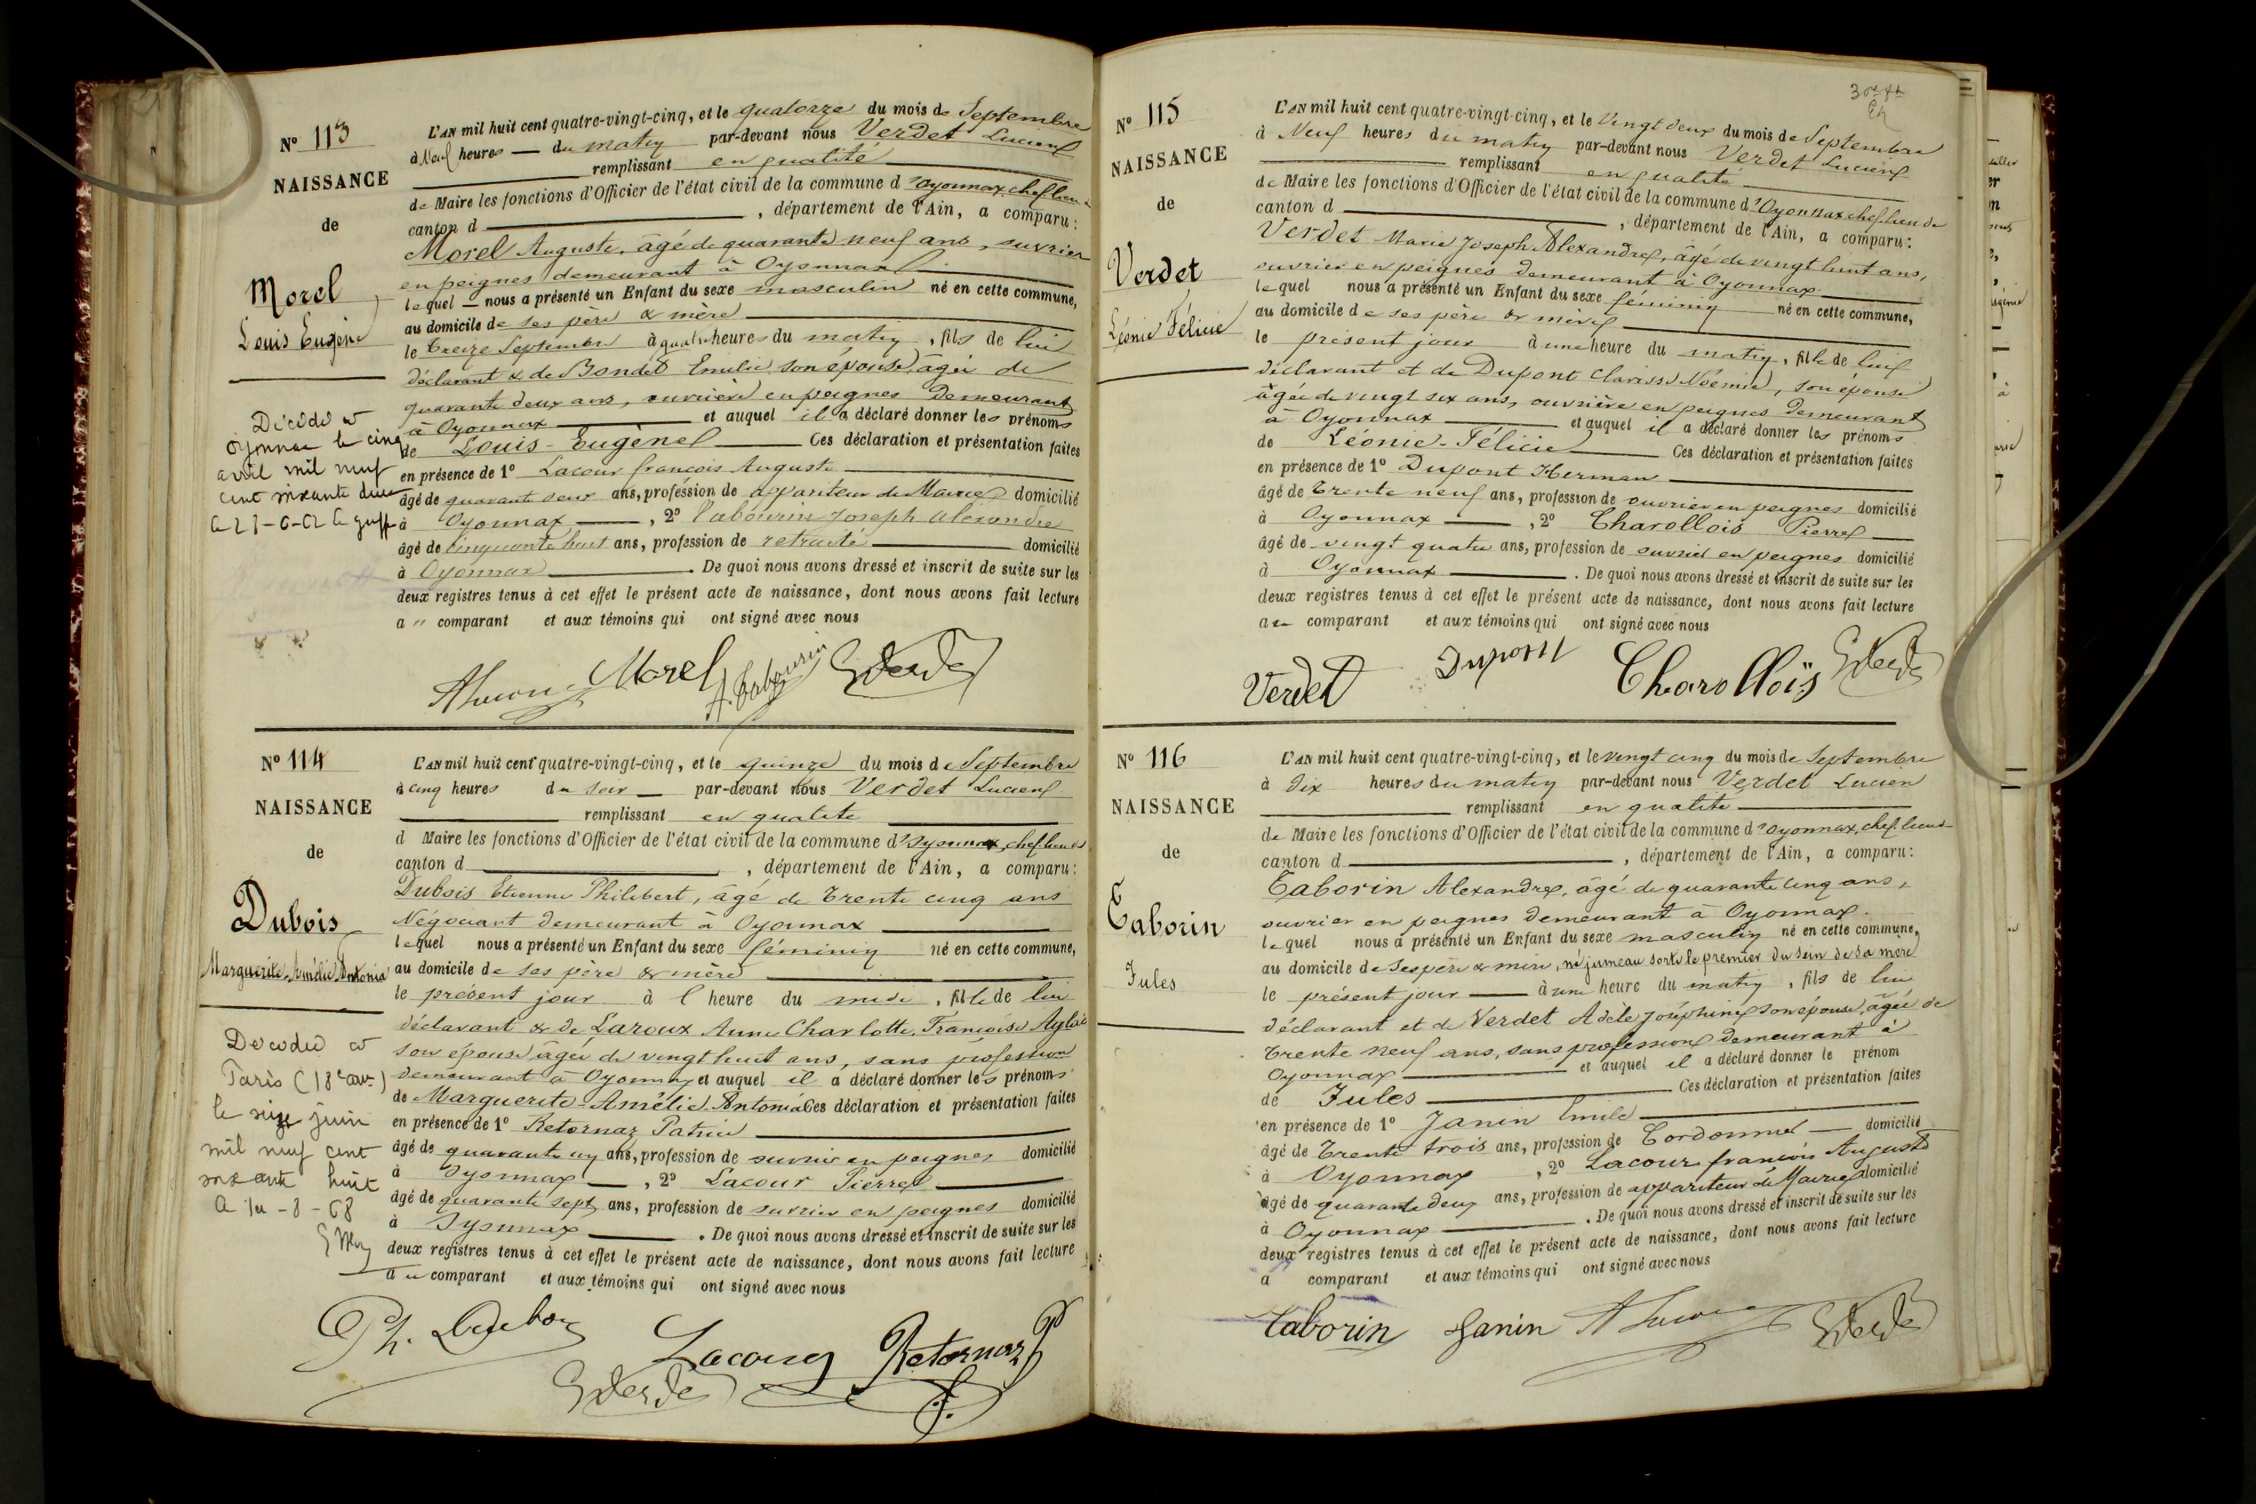 Nº 113
NAISSANCE
de
Morel
Louis Eugène
Décédé à
Oyonnax le cinq
avril mil neuf
cent soixante deux
L'AN mil huit cent quatre-vingt-cinq, et le quatorze du mois de Septembre
à Neuf heures du matin par-devant nous Verdet Lucien
remplissant en qualité
de Maire les fonctions d'Officier de l'état civil de la commune d'Oyonnax, chef-lieu de
canton d , département de l'Ain, a comparu :
Morel Auguste, âgé de quarante neuf ans, ouvrier
en peignes demeurant à Oyonnax
lequel nous a présenté un Enfant du sexe masculin né en cette commune,
au domicile de ses père & mère
le treize Septembre à quatre heures du matin, fils de lui
déclarant & de Bondet Emilie son épouse, âgée de
quarante deux ans, ouvrière en peignes demeurant
à Oyonnax et auquel il a déclaré donner les prénoms
de Louis-Eugène Ces déclaration et présentation faites
en présence de 1º Lacour françois Auguste
âgé de quarante deux ans, profession de appariteur de Mairie domicilié
à Oyonnax , 2º Tabourin Joseph alexandre
âgé de cinquante huit ans, profession de retraité domicilié
à Oyonnax . De quoi nous avons dressé et inscrit de suite sur les
deux registres tenus à cet effet le présent acte de naissance, dont nous avons fait lecture
a u comparant et aux témoins qui ont signé avec nous
Morel
Nº 114
NAISSANCE
de
Dubois
Marguerite Amélie Antonia
Décédée à
Paris (18e arr.)
le seize juin
mil neuf cent
soixante huit
L'AN mil huit cent quatre-vingt-cinq, et le quinze du mois de Septembre
à cinq heures du soir par-devant nous Verdet Lucien
remplissant en qualité
d Maire les fonctions d'Officier de l'état civil de la commune d'Oyonnax, chef-lieu de
canton d , département de l'Ain, a comparu :
Dubois Etienne Philibert, âgé de trente cinq ans
Négociant demeurant à Oyonnax
lequel nous a présenté un Enfant du sexe féminin né en cette commune,
au domicile de ses père & mère
le présent jour à l heure du midi, fille de lui
déclarant & de Laroux Anne Charlotte Françoise Aglaé
son épouse âgée de vingt huit ans, sans profession
demeurant à Oyonnax et auquel il a déclaré donner les prénoms
de Marguerite-Amélie Antonia Ces déclaration et présentation faites
en présence de 1º Retornaz Patrice
âgé de quarante un ans, profession de ouvrier en peignes domicilié
à Oyonnax , 2º Lacour Pierre
âgé de quarante sept ans, profession de ouvrier en peignes domicilié
à Oyonnax . De quoi nous avons dressé et inscrit de suite sur les
deux registres tenus à cet effet le présent acte de naissance, dont nous avons fait lecture
a u comparant et aux témoins qui ont signé avec nous
Ph. Dubois
Lacour Retornaz P
Nº 115
NAISSANCE
de
Verdet
Léonie Félicie
L'AN mil huit cent quatre-vingt-cinq, et le Vingt deux du mois de Septembre
à Neuf heures du matin par-devant nous Verdet Lucien
remplissant en qualité
de Maire les fonctions d'Officier de l'état civil de la commune d'Oyonnax chef-lieu de
canton d , département de l'Ain, a comparu :
Verdet Marie Joseph Alexandre, âgé de vingt huit ans,
ouvrier en peignes demeurant à Oyonnax
lequel nous a présenté un Enfant du sexe féminin né en cette commune,
au domicile de ses père & mère
le présent jour à une heure du matin, fille de lui
déclarant et de Dupont Clarisse Noémie, son épouse
âgée de vingt six ans, ouvrière en peignes demeurant
à Oyonnax et auquel il a déclaré donner les prénoms
de Léonie-Félicie Ces déclaration et présentation faites
en présence de 1º Dupont Herman
âgé de trente neuf ans, profession de ouvrier en peignes domicilié
à Oyonnax , 2º Charollois Pierre
âgé de vingt quatre ans, profession de ouvrier en peignes domicilié
à Oyonnax . De quoi nous avons dressé et inscrit de suite sur les
deux registres tenus à cet effet le présent acte de naissance, dont nous avons fait lecture
au comparant et aux témoins qui ont signé avec nous
Verdet Dupont Charolloïs
Nº 116
NAISSANCE
de
Taborin
Jules
L'AN mil huit cent quatre-vingt-cinq, et le vingt cinq du mois de Septembre
à Dix heures du matin par-devant nous Verdet Lucien
remplissant en qualité
de Maire les fonctions d'Officier de l'état civil de la commune d'Oyonnax, chef-lieu de
canton d , département de l'Ain, a comparu :
Taborin Alexandre, âgé de quarante cinq ans,
ouvrier en peignes demeurant à Oyonnax.
lequel nous a présenté un Enfant du sexe masculin né en cette commune,
au domicile de ses père & mère, né jumeau sorti le premier du sein de sa mère
le présent jour à une heure du matin, fils de lui
déclarant et de Verdet Adèle Joséphine son épouse, âgée de
trente neuf ans, sans profession demeurant à
Oyonnax et auquel il a déclaré donner le prénom
de Jules Ces déclaration et présentation faites
en présence de 1º Janin Emile
âgé de trente trois ans, profession de Cordonnier domicilié
à Oyonnax , 2º Lacour françois Auguste
âgé de quarante deux ans, profession de appariteur de Mairie domicilié
à Oyonnax . De quoi nous avons dressé et inscrit de suite sur les
deux registres tenus à cet effet le présent acte de naissance, dont nous avons fait lecture
a comparant et aux témoins qui ont signé avec nous
Taborin Janin